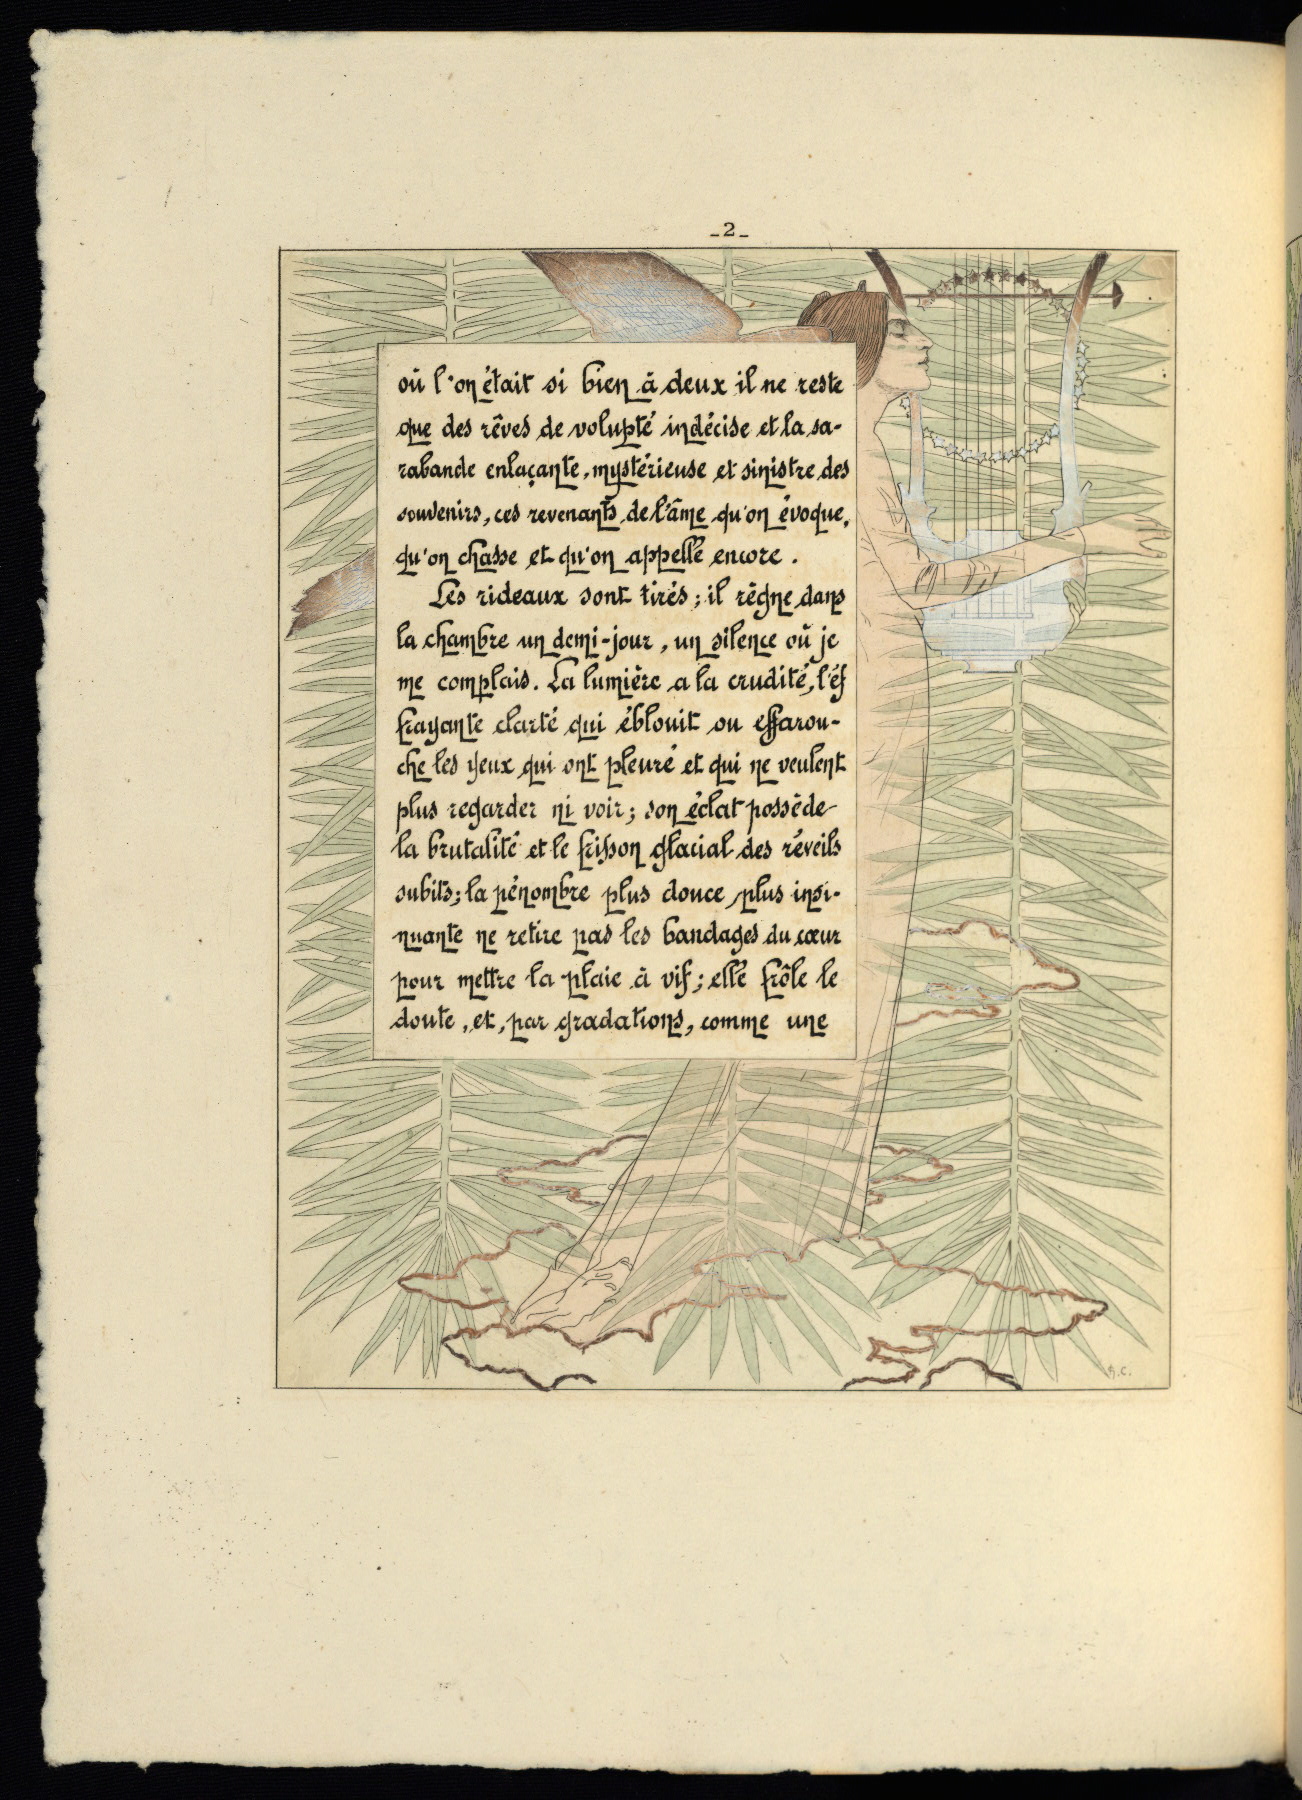 _2_
où l'on était si bien à deux il ne reste
que des rêves de volupté indécise et la sa-
rabande enlaçante, mystérieuse et sinistre des
souvenirs, ces revenants de l'âme qu'on évoque,
qu'on chasse et qu'on appelle encore.
Les rideaux sont tirés; il règne dans
la chambre un demi-jour, un silence où je
me complais. La lumière a la crudité, l'ef
frayante clarté qui éblouit ou effarou-
che les yeux qui ont pleuré et qui ne veulent
plus regarder ni voir; son éclat possède
la brutalité et le frisson glacial des réveils
subits; la pénombre plus douce, plus insi-
nuante ne retire pas les bandages du cœur
pour mettre la plaie à vif; elle frôle le
doute, et, par gradations, comme une